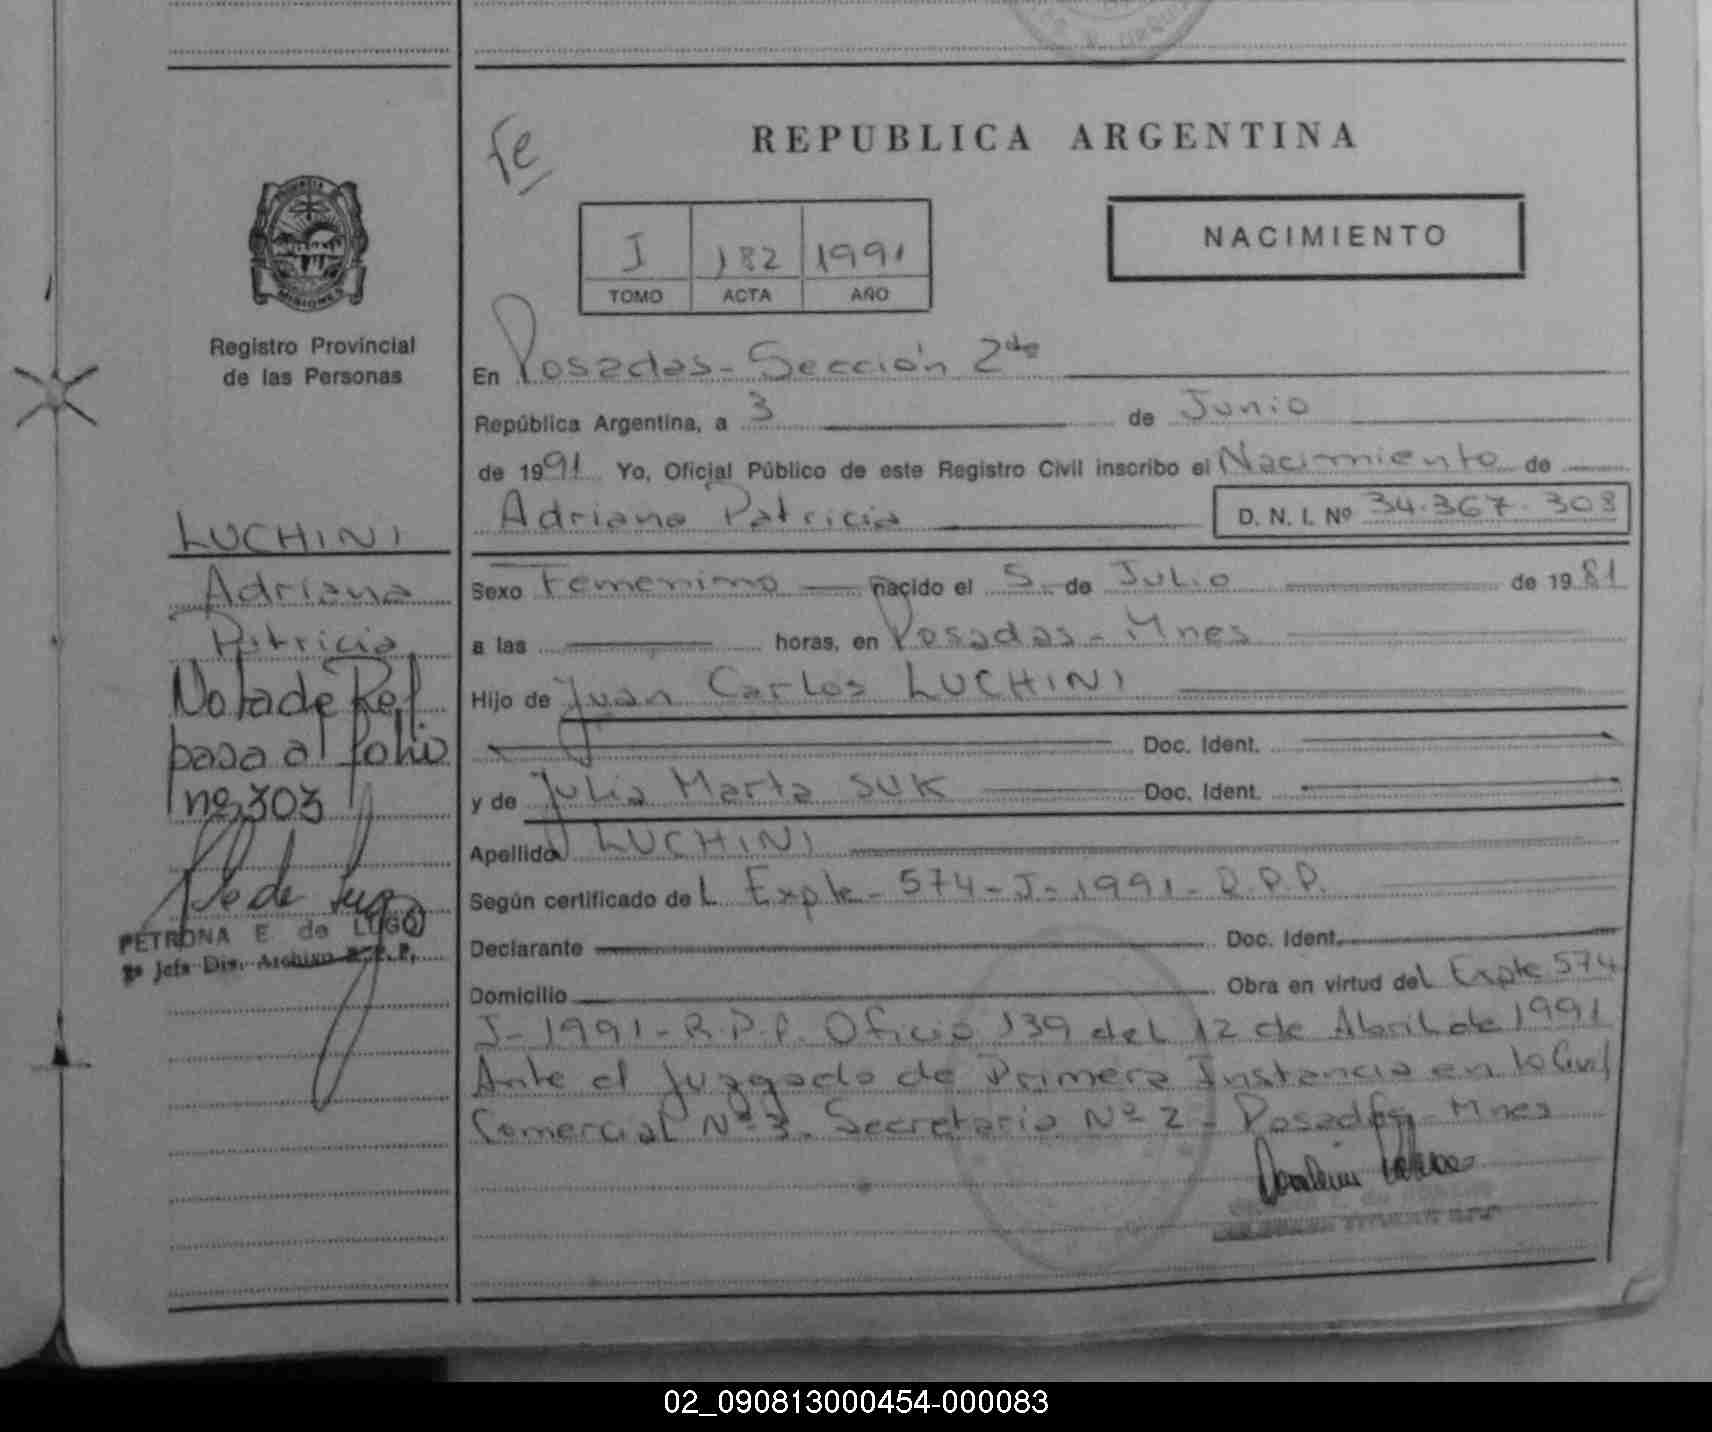 Fe
REPUBLICA ARGENTINA
NACIMIENTO
J 182 1991
TOMO ACTA AÑO
MISIONES
Registro Provincial
de las Personas
En Posadas - Sección 2da
República Argentina, a 3 de Junio
de 1991 Yo, Oficial Público de este Registro Civil inscribo el Nacimiento de
Adriana Patricia D. N. I. Nº 34.367.303
LUCHINI
Adriana
Patricia
Nota de Ref.
pasa al folio
nº 303
PETRONA E. de LUGO
2º Jefa Div. Archivo R.P.P.
Sexo Femenino nacido el 5 de Julio de 1981
a las horas, en Posadas - Mnes
Hijo de Juan Carlos LUCHINI
Doc. Ident.
y de Julia Marta SUK Doc. Ident.
Apellido LUCHINI
Según certificado del Expte - 574 - J - 1991 - R.P.P.
Declarante Doc. Ident.
Domicilio Obra en virtud del Expte 574
J - 1991 - R.P.P. Oficio 139 del 12 de Abril de 1991
Ante el Juzgado de Primera Instancia en lo Civil
Comercial Nº 3. Secretaria Nº 2 - Posadas - Mnes
02_090813000454-000083